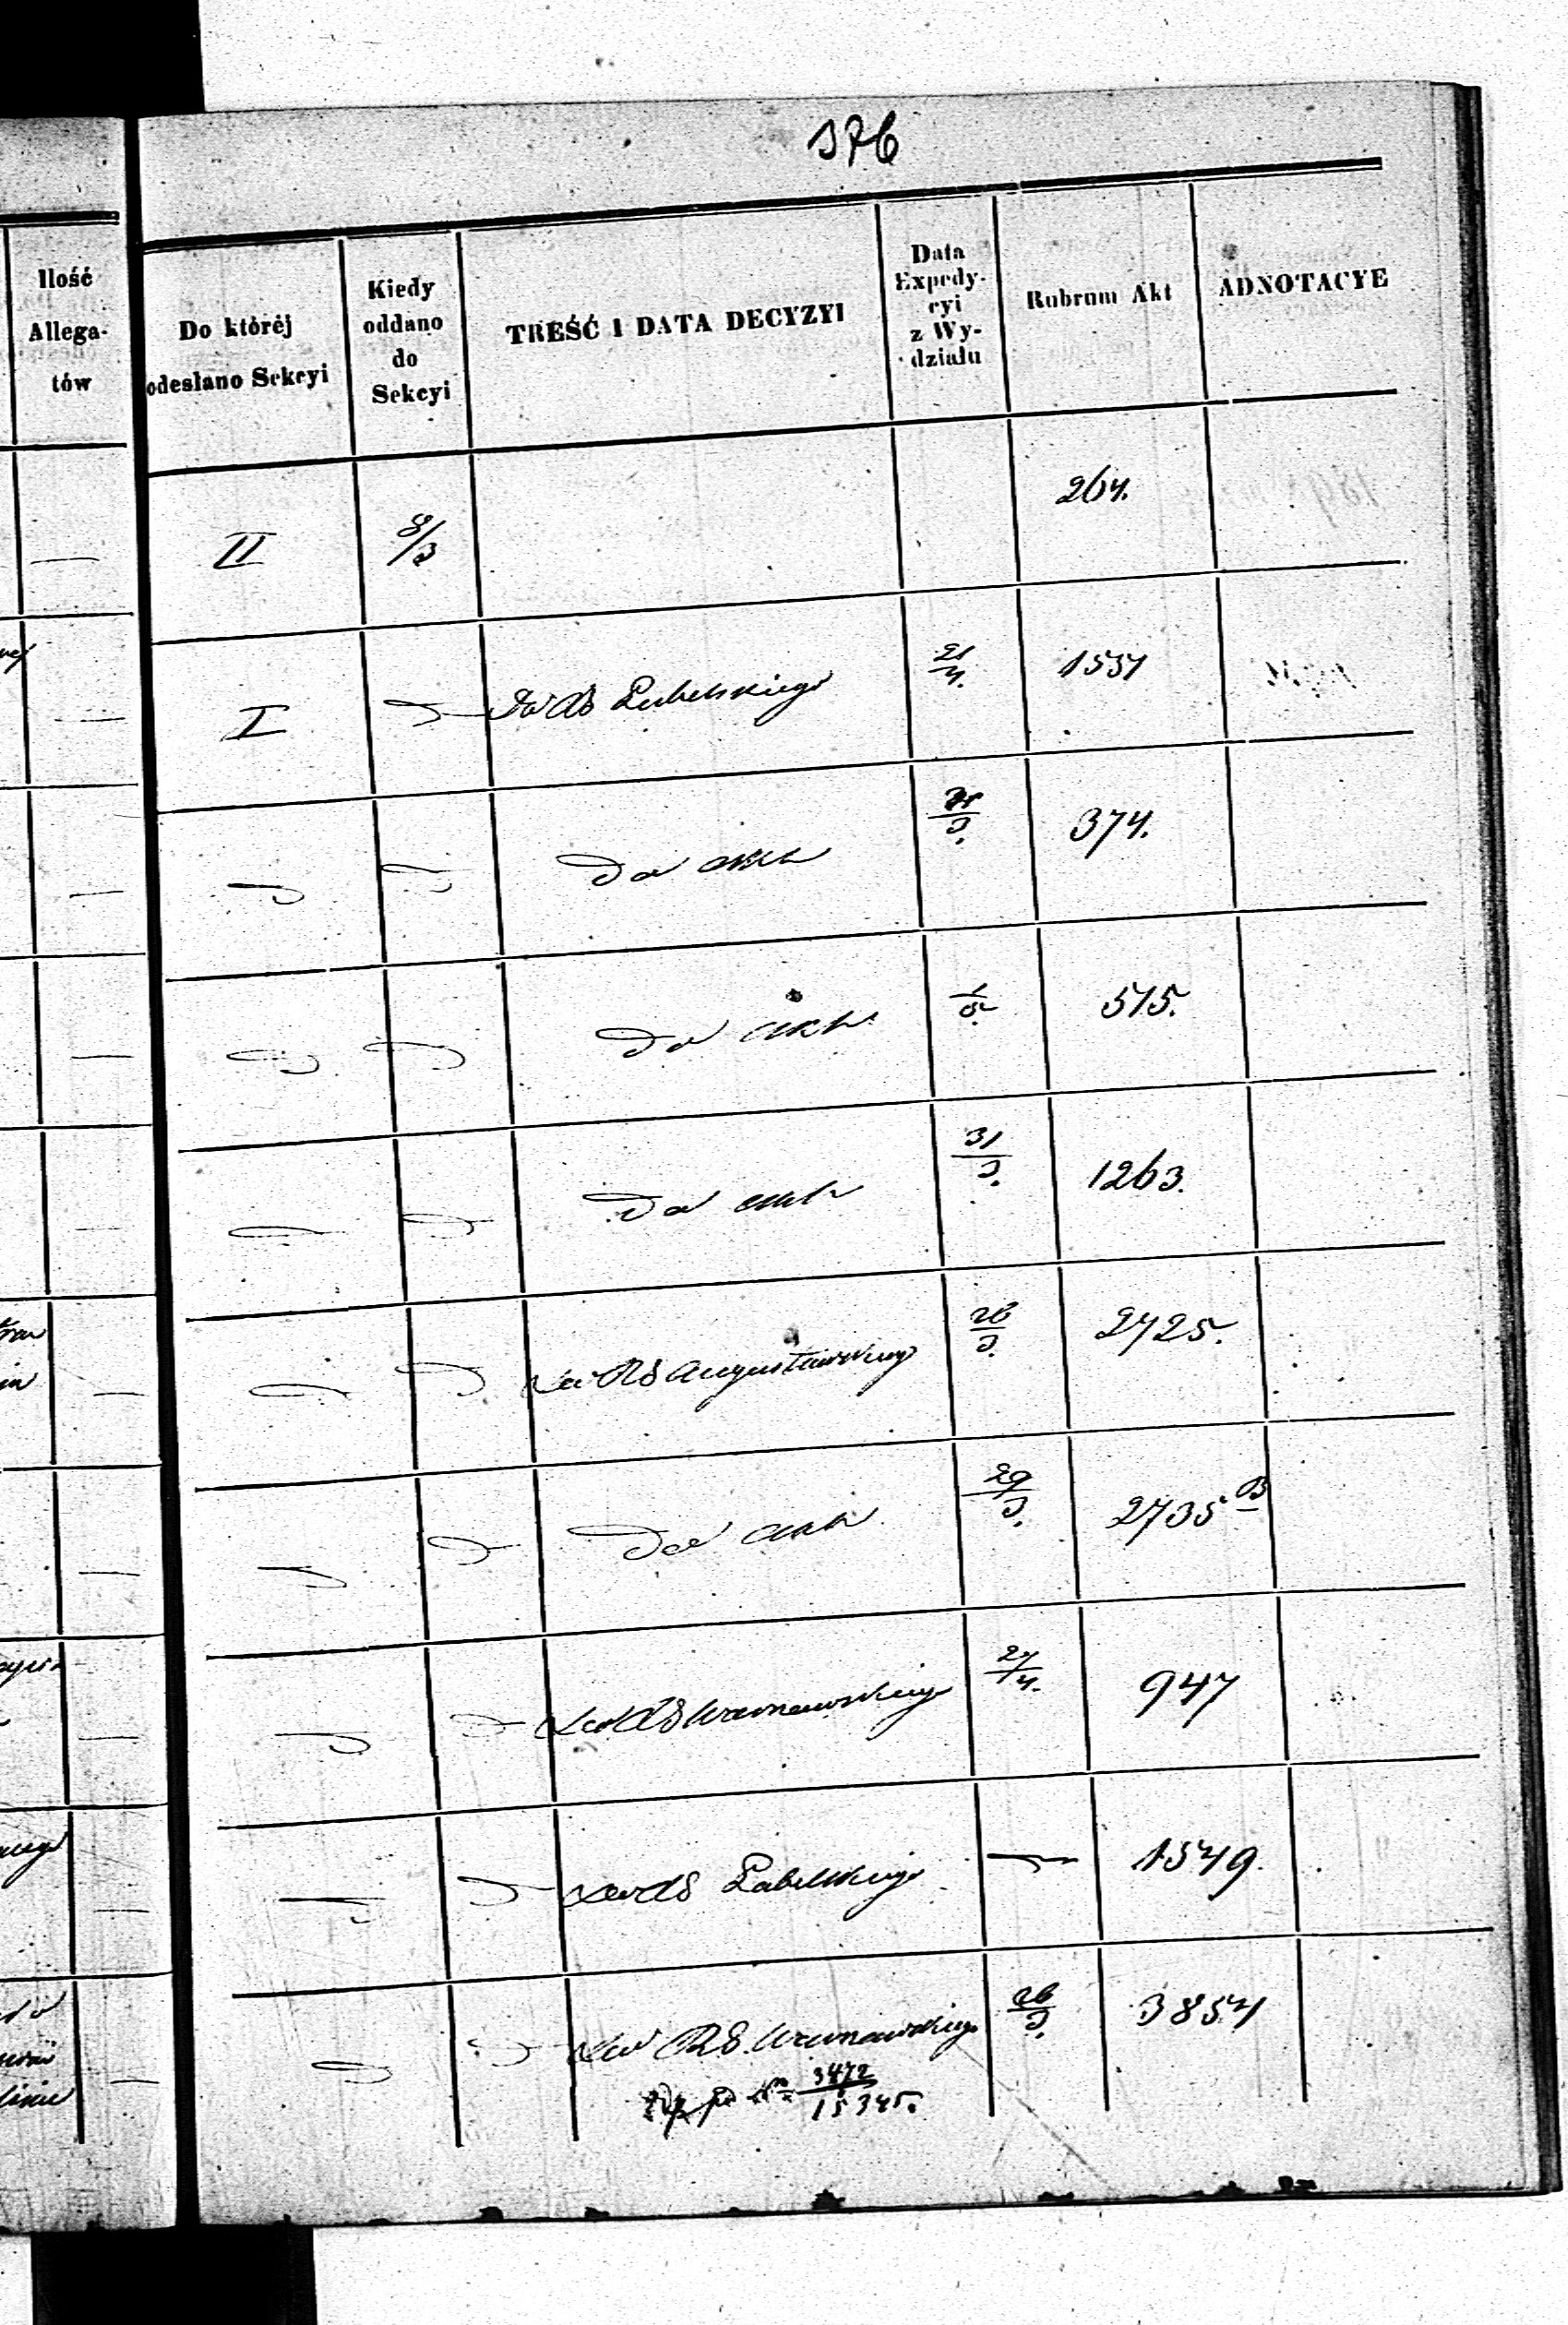 376
Ilość
Allega-
tów
Do któréj
odesłano Sekcyi
Kiedy
oddano
do
Sekcyi
TREŚĆ I DATA DECYZYI
Data
Expedy-
cyi
z Wy-
działu
Rubrum Akt
ADNOTACYE
II 8/3 264.
I Do RS Lubelskiego 21/4. 1554
Do akt 21/3. 374.
Do akt 575.
Do akt 31/3. 1263.
Do RS Augustowskiego 26/3. 2725.
Do akt 29/3. 2735 B
Do RS Warszawskiego 27/4. 947
Do RS Lubelskiego 1549.
Do RS Warszawskiego 26/3. 3854
3472/15345.